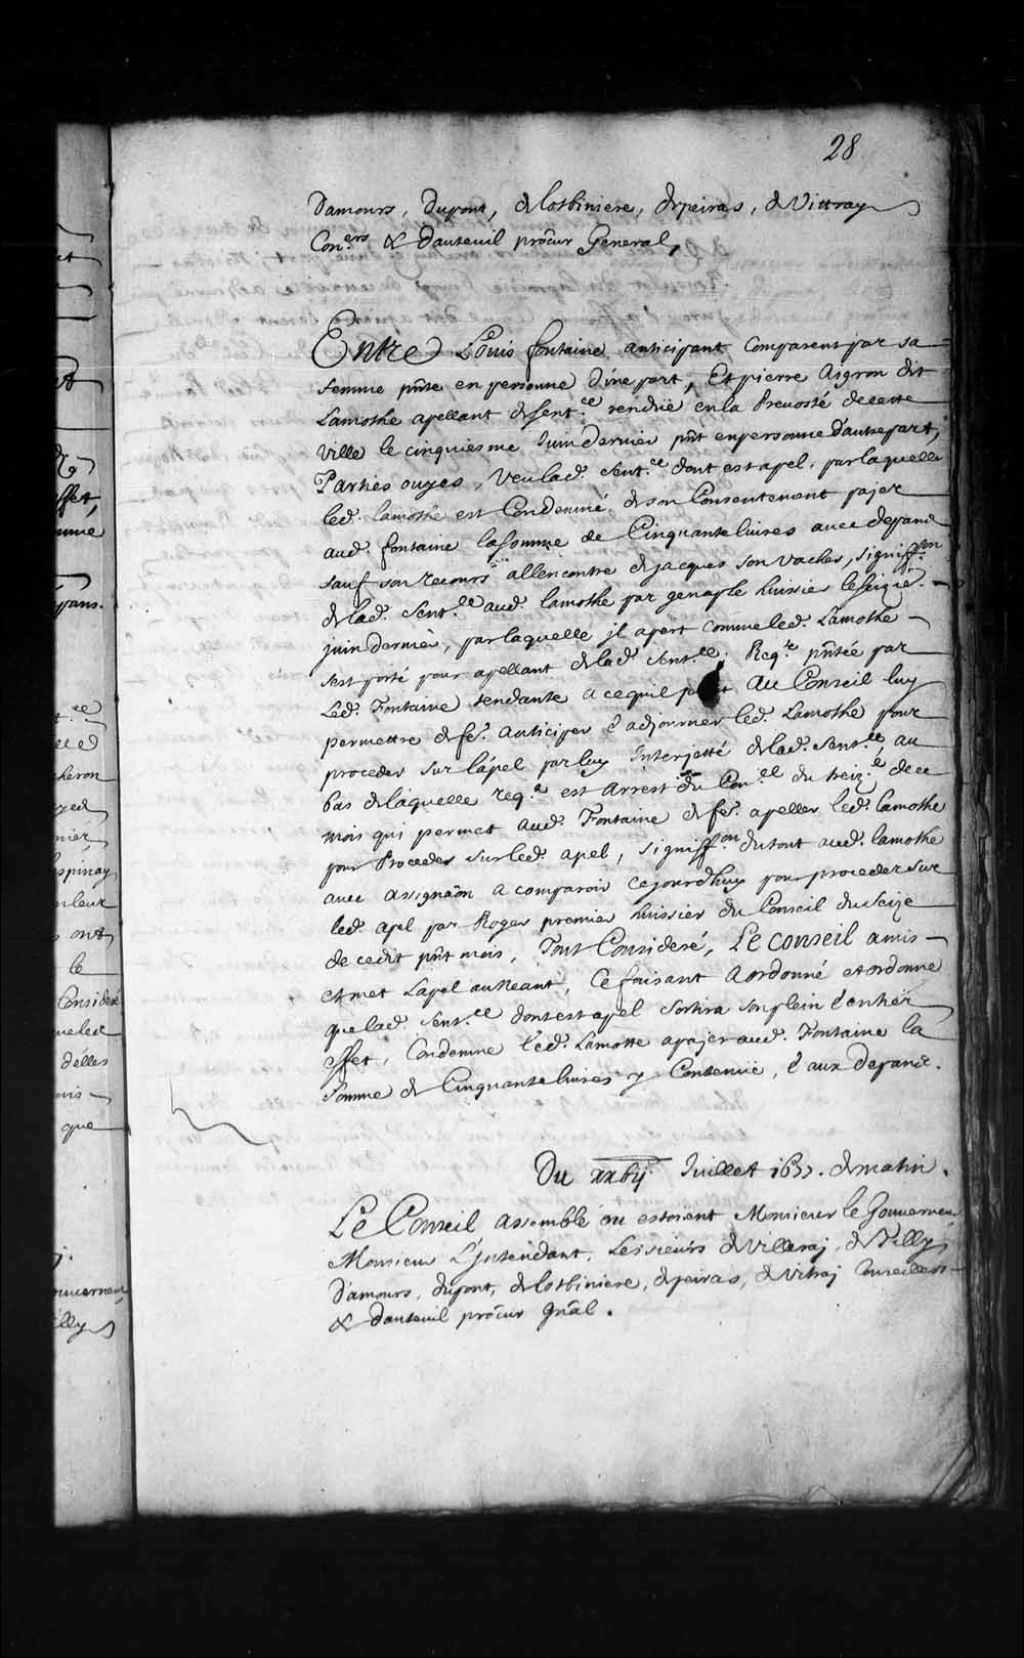 28
Damours, Dupont, de lotbiniere, depeiras, de Vittray
Con.ers & Dauteuil procur General,
Entre Louis fontaine anticipant Comparent par sa
femme pñte en personne d'une part, Et pierre Aigron dit
Lamothe apellant de sent.ce rendüe en la Preuosté de cette
Ville le cinquiesme Juin dernier pñt en personne d'autre part,
Parties ouyes, Veu lad. Sent.ce dont est apel, par laquelle
led. lamothe est Condemné de son Consentement pajer
aud. fontaine la somme de Cinquante liures auec depans
sauf son recours allencontre de jacques son Vacher, signiff.on
de lad. Sent.ce aud. lamothe par genaple huissier le
juin dernier, par laquelle jl apert comme led. Lamothe
sest porté pour apellant de lad. Sent.ce. Req.te pñtée par
Led. Fontaine tendante a ce quil au Conseil luy
permettre de fe. anticiper & adjourner led. Lamothe pour
proceder sur l'apel par luy Interjetté de lad. Sent.ce, au
bas de laquelle req.te est Arrest du Con.el du treiz.e de ce
mois qui permet aud. Fontaine de fe. apeller led. lamothe
pour Proceder sur led. apel, signiff.on du tout aud. lamothe
auec assignaõn a comparoir cejourdhuy pour proceder sur
led. apel par Roger premier huissier du Conseil du Seize
de cedit pñt mois, Tout Consideré, Le Conseil a mis
et met Lapel au Neant, Ce faisant A ordonné et ordonne
que lad. Sent.ce dont est apel sortira son plein & entier
effet, Condemne led. Lamotte a pajer aud. Fontaine la
somme de Cinquante liures y Contenüe, & aux depans.
Du xxbij Juillet 1677. de matin.
Le Conseil assemblé ou estoient Monsieur le Gouuerneur
Monsieur L'Jntendant, Les sieurs de Villeraj, de Tilly,
D'amours, dupont, de lotbiniere, depeiras, de Vitraj Conseillers
& Dauteuil procur gnãl.